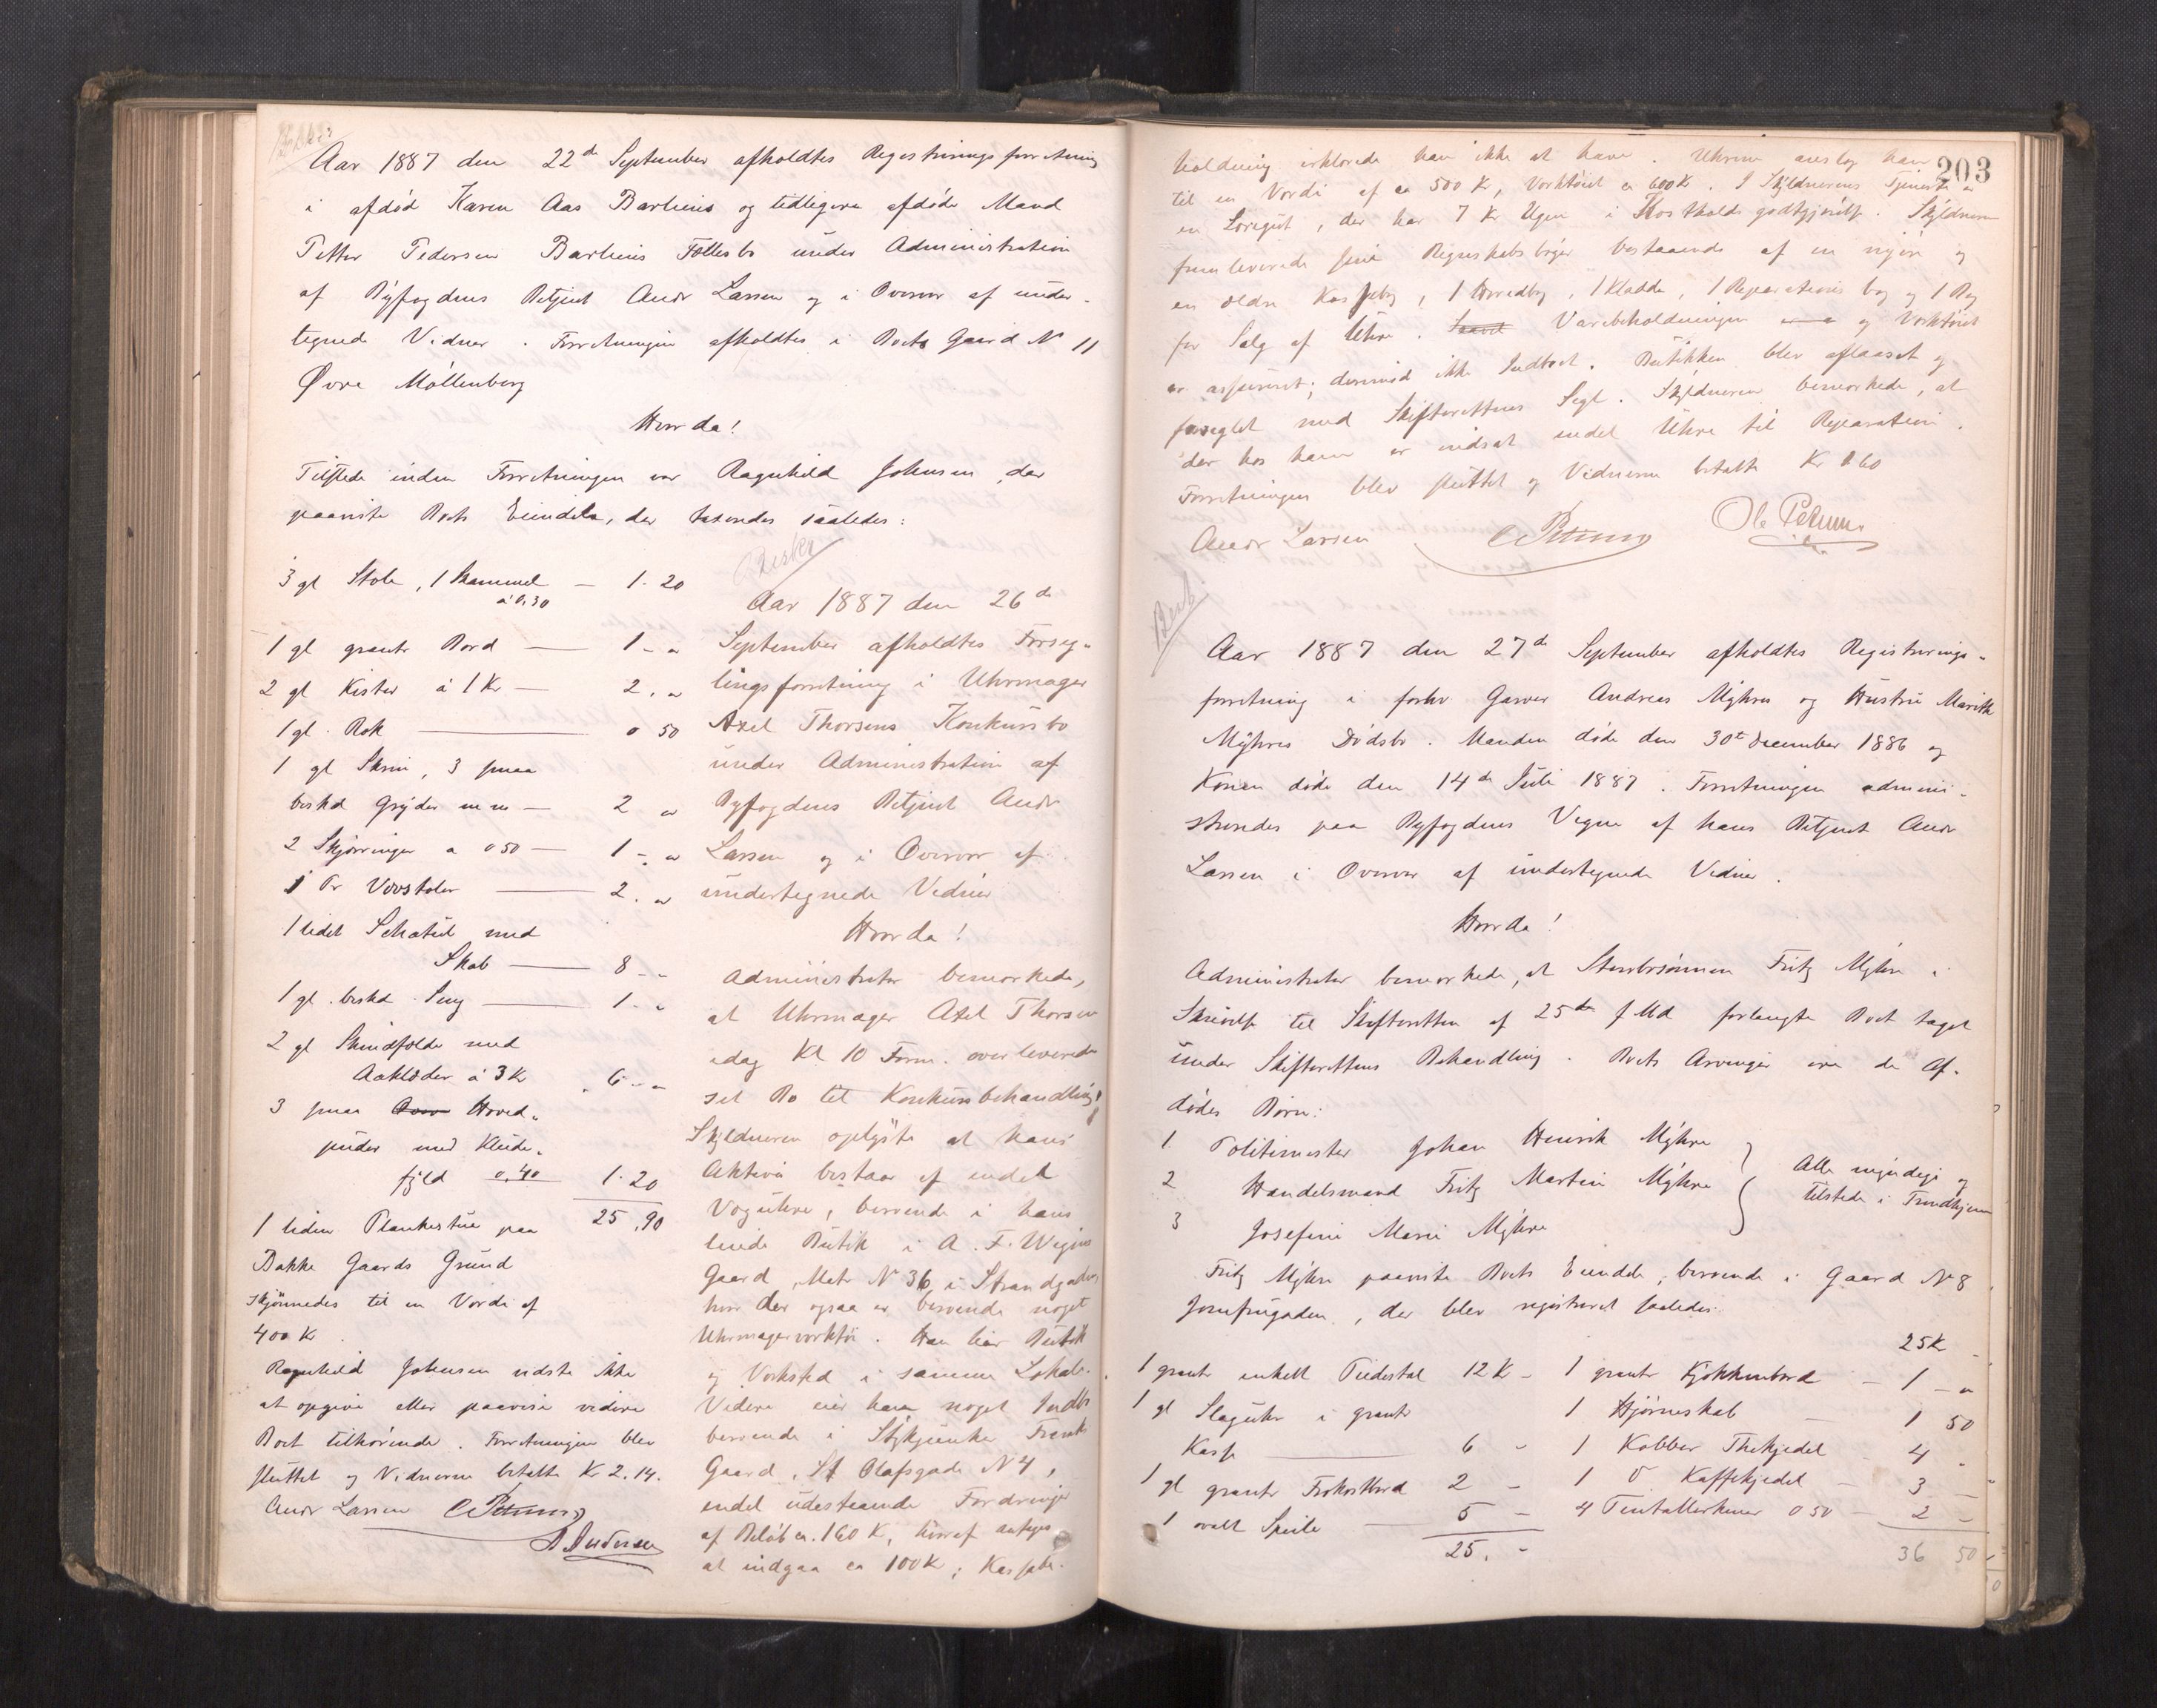 Aar 1887 den 22de September afholdtes Registreringsforretning
i afdöd Karen Aas Barliens og tidligere afdöde Mand
Petter Pedersen Barliens Fællesbo under Administration
af Byfogdens Betjent Andr Larsen og i Overvær af under-
tegnede Vidner. Forretningen afholdtes i Boets Gaard No 11
Øvre Möllenberg
Hvorda!
Tilstede under Forretningen var Ragnhild Johnsen, der
paaviste Boets Eiendele, der taxeredes saaledes:
3 gl Stole, 1 Skammel — 1. 20
à 0,30
1 gl grantr Bord — 1 - "
2 gl Kister à 1 Kr — 2. "
1 gl. Rok — 0 50
1 gl Skrin, 3 smaa
beskd Gryder m m — 2 "
2 Skjörringer a 0 50 — 1 - "
1 Pr Vævstoler — 2. "
1 lidet Schatul med
Skab — 8 - -
1 gl. beskd Seng — 1 - "
2 gl Skindfælde med
Aaklæder à 3 Kr " 6 - "
3 smaa Hoved-
puder med Klude-
fyld 0,40 1. 20
25,90
1 liden Plankestue paa
Bakke Gaards Grund
skjönnedes til en Værdi af
400 Kr.
Ragnhild Johnsen vidste ikke
at opgive eller paavise videre
Boet tilhörende. Forretningen blev
sluttet og Vidnerne betalte Kr 2.14.
Andr Larsen C Petersen
A Andersen
Besk
Aar 1887 den 26de
September afholdtes Forseg-
lingsforretning i Uhrmager
Axel Thorsens Konkursbo
under Administration af
Byfogdens Betjent Andr
Larsen og i Overvær af
undertegnede Vidner
Hvorda!
Administrator bemærkede,
at Uhrmager Axel Thorsen
idag Kl 10 Form. overleverede
sit Bo til Konkursbehandling.
Skyldneren oplyste at hans
Aktiva bestaar af endel
Væguhre, beroende i hans
leiede Butik i A. F. Wigins
Gaard, Matr No 36 i Strandgaden,
hvor der ogsaa er beroende noget
Uhrmagerværktöi. Han har Butik
og Værksted i samme Lokale.
Videre eier han noget Indbo
beroende i Gaard, St Olafsgade No 4,
endel udestaaende Fordringer
af Belöb ca. 160 Kr, hvoraf antages
at indgaa ca 100 Kr; Kassebe-
203
holdning erklærede han ikke at have. Uhrene anslog han
til en Værdi af ca 500 Kr, Værktöiet ca 600 Kr. I Skyldnerens Tjeneste er
en Læregut, der har 7 Kr Ugen i Kostholdsgodtgjörelse. Skyldneren
fremleverede sine Regnskabsböger bestaaende af en nyere og
en ældre Kassebog, 1 Hovedbog, 1 Kladde, 1 Reparations bog og 1 Bog
for Salg af Uhre. Varebeholdningen og Værktöiet
er assureret; derimod ikke Indboet. Butikken blev aflaaset og
forseglet med Skifterettens Segl. Skyldneren bemærkede, at
der hos ham er indsat endel Uhre til Reparation.
Forretningen blev sluttet og Vidnerne betalte Kr 1 60
Andr Larsen C Petersen Ole Petersen
Besk
Aar 1887 den 27de September afholdtes Registrerings-
forretning i forhv Garver Andreas Myhres og Hustru Marith
Myhres Dödsbo. Manden döde den 30te December 1886 og
Konen döde den 14de Juli 1887. Forretningen admini-
streredes paa Byfogdens Vegne af hans Betjent Andr
Larsen i Overvær af undertegnede Vidner.
Hvorda!
Administrator bemærkede, at Stervbosönnen Fritz Myhre i
Skrivelse til Skifteretten af 25de f Md forlangte Boet taget
under Skifterettens Behandling. Boets Arvinger ere de Af-
dödes Börn:
1 Politimester Johan Henrik Myhre
2 Handelsmand Fritz Martin Myhre
3 Josefine Marie Myhre
Alle myndige og
tilstede i Trondhjem
Fritz Myhre paaviste Boets Eiendele, beroende i Gaard No 8
Jomfrugaden, der blev registreret saaledes:
1 grantr enkelt Piedestal 12 Kr -
1 gl Slaguhr i grantr
Kasse — 6 -
1 gl grantr Frokostbord 2 -
1 ovalt Speile — 5 -
25. -
25 Kr -
1 grantr Kjökkenbord — 1 - "
1 Hjörneskab — 1 50
1 Kobber Thekjedel — 4 -
1 D Kaffekjedel — 3 -
4 Tintallerkener 0 50 — 2 -
36 50